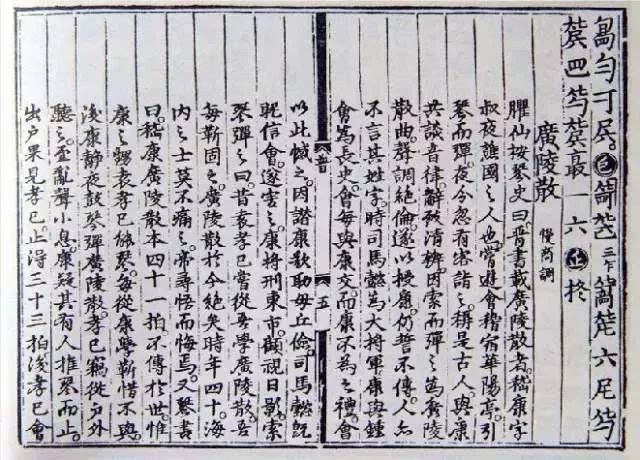 廣陵散 慢商調
臞仙按琴史曰晉書載廣陵散者嵇康字
叔夜譙國之人也嘗遊會稽宿華陽亭引
琴而彈夜今忽有客詣之稱是古人與康
共談音律辭致清辨因索而彈之為廣陵
散曲聲調絕倫遂以授康仍誓不傳人亦
不言其姓字時司馬懿為大將軍康與鍾
會為長史會每與康交而康不為之禮會
以此憾之因譖康欲助毋丘儉司馬懿既
昵信會遂害之康將刑東市顧視日影索
琴彈之曰昔袁孝已嘗從吾學廣陵散吾
每靳固之廣陵散於今絕矣時年四十海
內之士莫不痛之帝尋悟而悔焉又琴書
曰嵇康廣陵散本四十一拍不傳於世惟
康之甥袁孝已能琴每從康學靳惜不與
後康靜夜鼓琴彈廣陵散孝已竊從戶外
聽之至亂聲小息康疑其有人推琴而止
出戶果見孝已止得三十三拍後孝已會